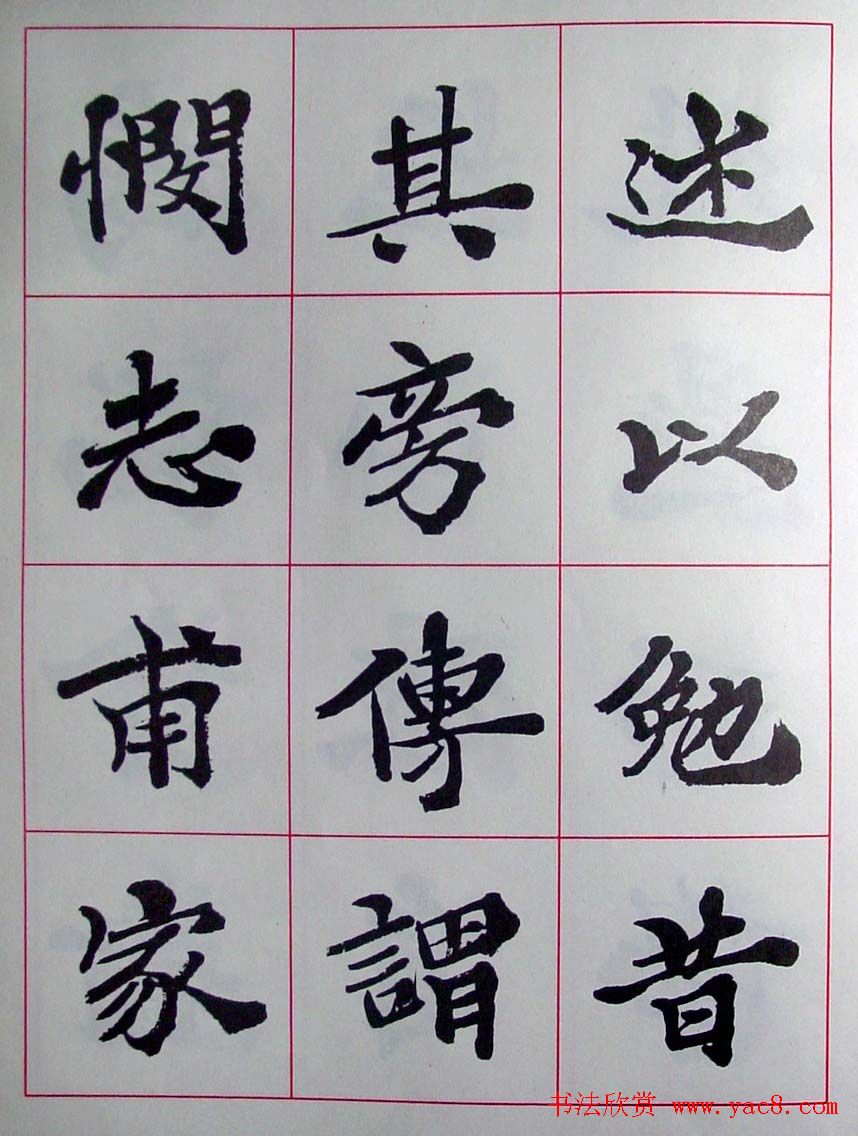 述以勉昔
其旁傳謂
憫志甫家
书法欣赏 www.yac8.com